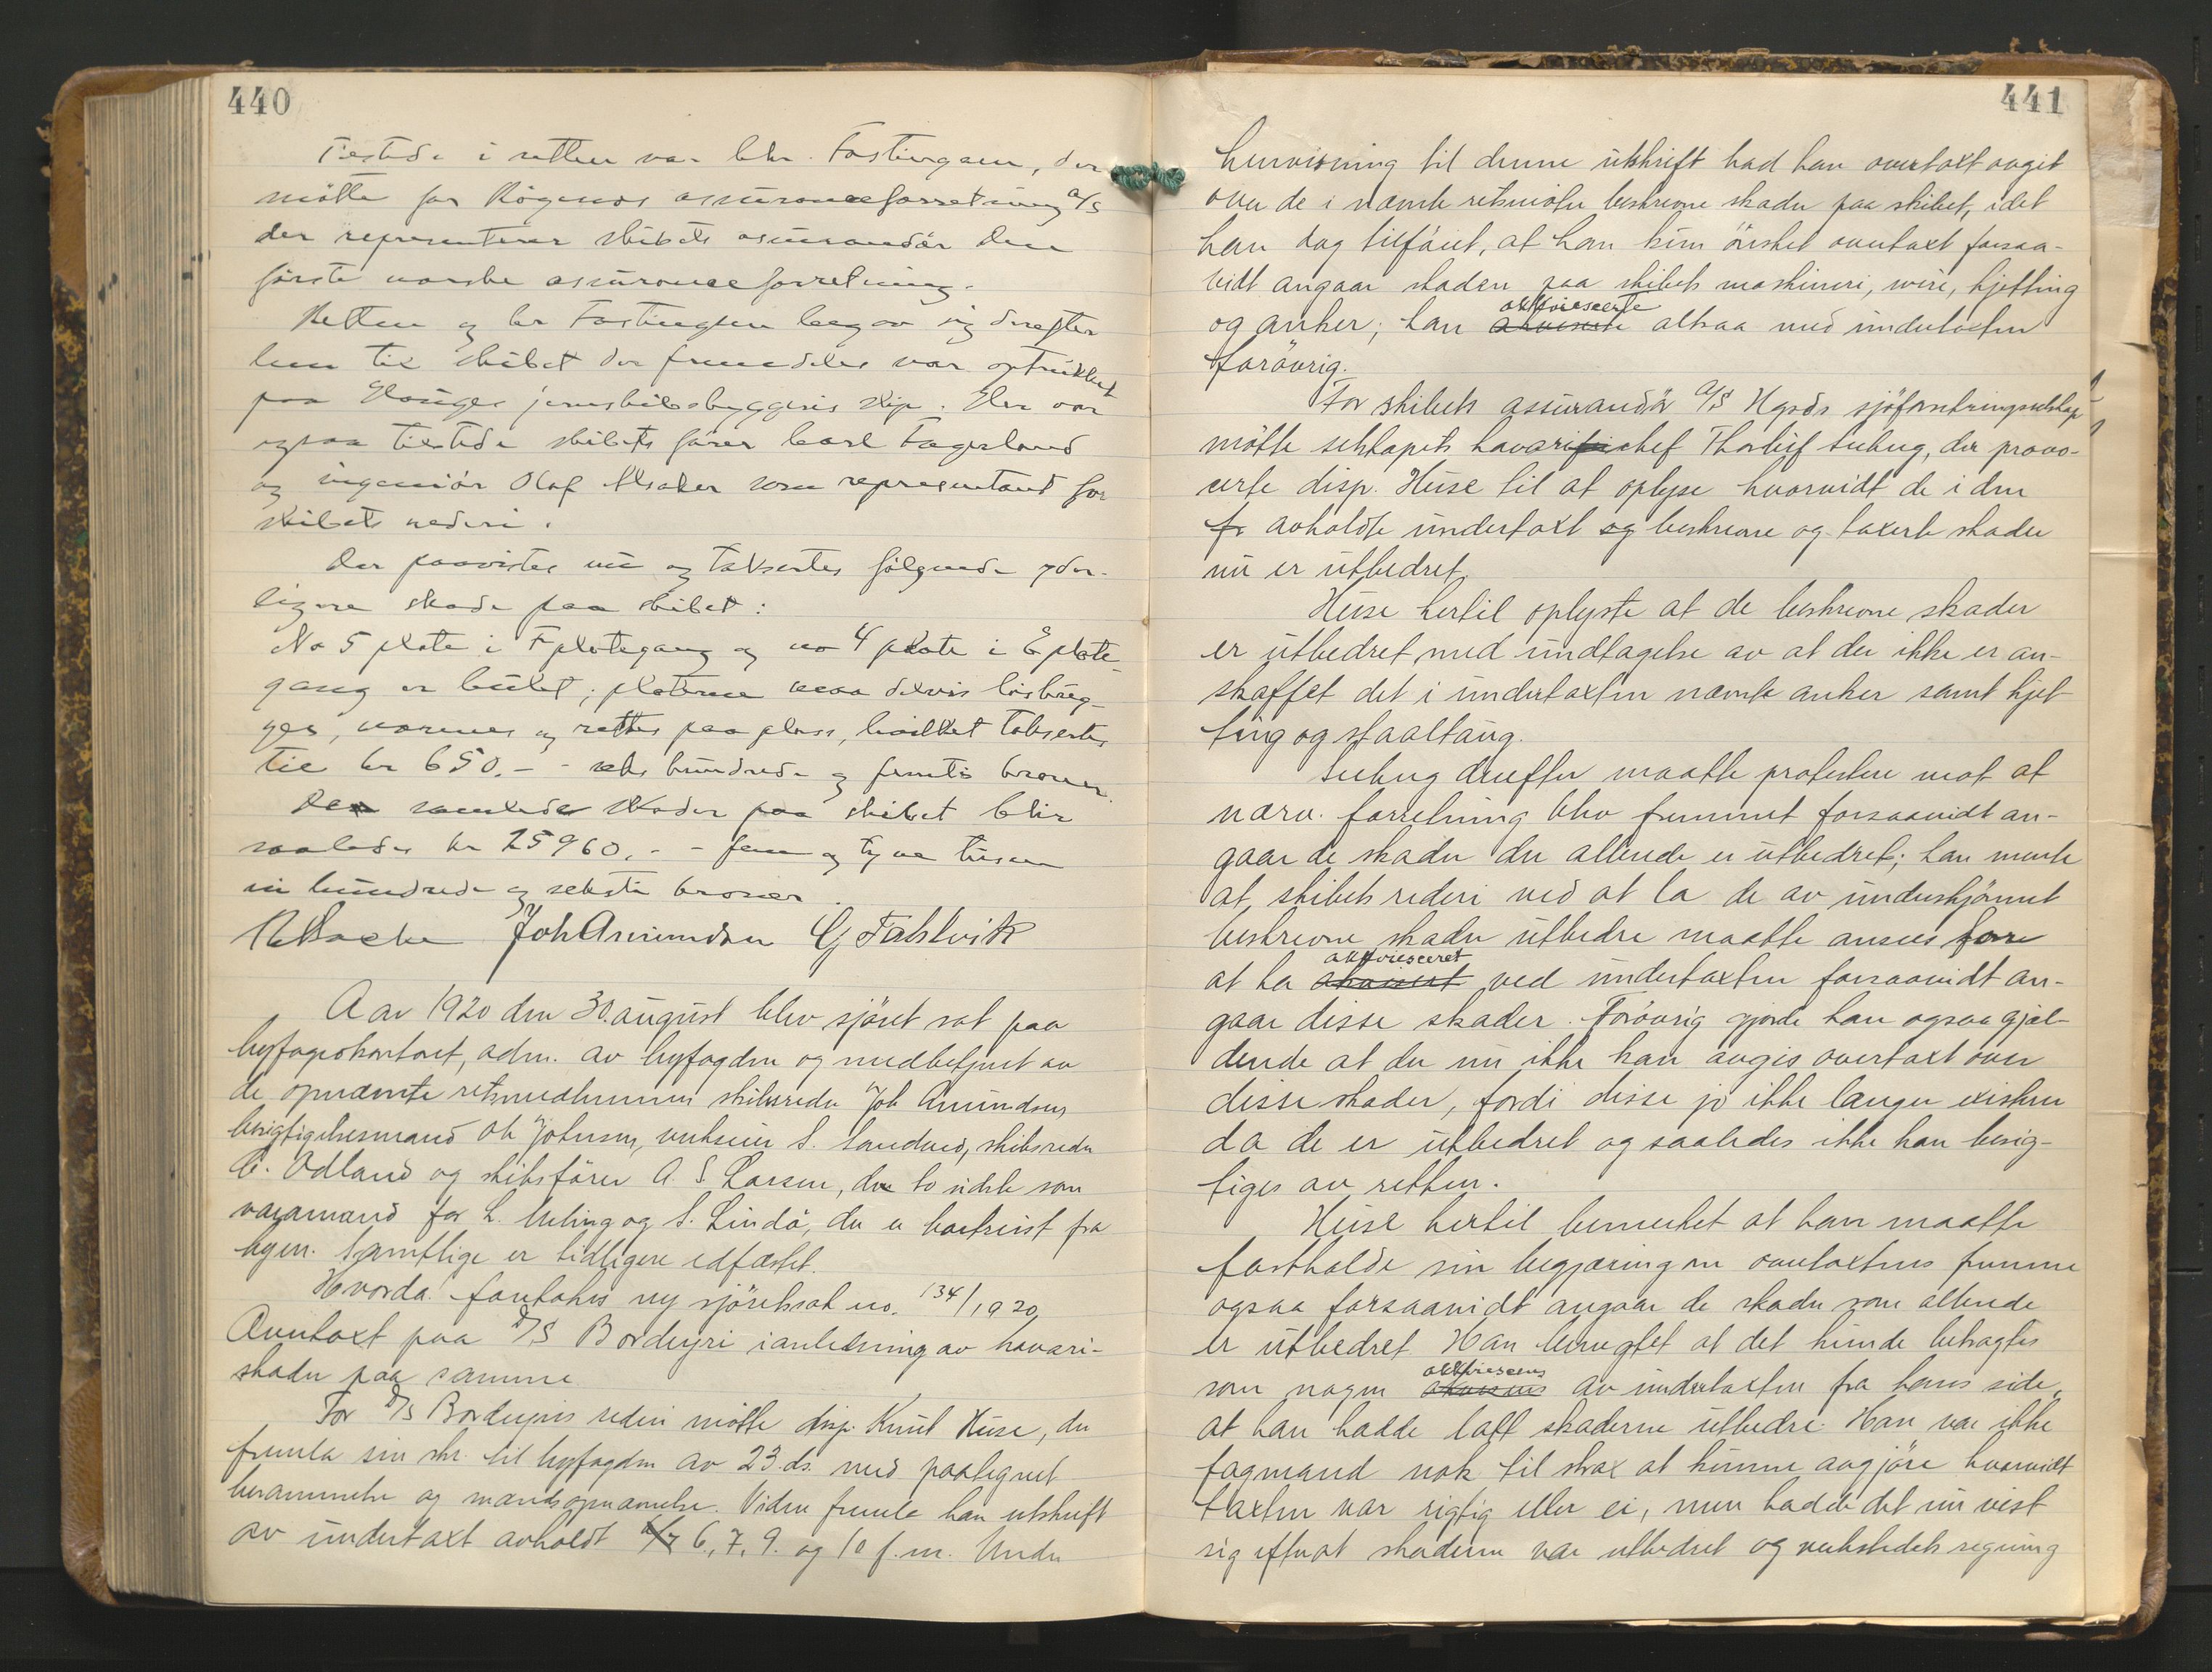 440
Tilstede i retten var hr. Fastingsen, der
mötte for Rögenæs assuranceforretning A/S
der representerer skibets assurandör den
förste norske assuranceforretning.
Retten og hr Fastingsen begav sig derefter
hen til skibet der fremdeles var optrukket
paa Hauges jernskibsbyggeris slip. Her var
ogsaa tilstede skibets förer Carl Fagerland
og ingeniör Olaf Alsaker som representant for
skibets rederi.
Der paavistes nu og taksertes fölgende yder-
ligere skade paa skibet:
No 5 plate i F plategang og no 4 plate i E plate-
gang er bulet; platerne maa delvis løsbreg-
ges, varmes og rettes paa plass, hvilket taksertes
til kr 650.- - seks hundrede og femti kroner.
De samlede skader paa skibet blir
saaledes kr 25960.- - fem og tyve tusen
ni hundrede og seksti kroner.
Joh Amundsen G Fahlvik
Aar 1920 den 30. august blev sjöret sat paa
byfogedkontoret, adm. av byfogden og medbetjent av
de opnævnte retsmedlemmer skibsreder Joh Amundsen,
besigtigelsesmand Ole Johnsen, verkseier S. Sandved, skibsreder
C. Odland og skibsförer A. S. Larsen, de to sidste som
varamænd for L. Meling og S. Lindö, der er bortreist fra
byen. Samtlige er tidligere edfæstet.
Hvorda: foretokes ny sjöretssak no. 134/1920,
Overtaxt paa D/S Bordeyri i anledning av havari-
skader paa samme
For D/S Bordeyris rederi mötte disp. Knut Huse, der
fremla sin skr. til byfogden av 23. ds. med paategnet
berammelse og mandsopnævnelse. Videre fremla han utskrift
av undertaxt avholdt 6., 7., 9. og 10 f.m. Under
441
henvisning til denne utskrift bad han overtaxt avgit
over de i nævnte retsmöter beskrevne skader paa skibet, idet
han dog tilföiet, at han kun önsket overtaxt forsaa-
vidt angaar skaden paa skibets maskineri, wire, kjetting
og anker; han akkviescerte altsaa med undertaxten
forövrig.
For skibets assurandör A/S Hgsds sjöforsikringsselskap
mötte selskapets havarichef Thorleif Seeberg, der provo-
certe disp. Huse til at oplyse hvorvidt de i den
avholdte undertaxt beskrevne og taxerte skader
nu er utbedret.
Huse hertil oplyste at de beskrevne skader
er utbedret med undtagelse av at der ikke er an-
skaffet det i undertaxten nævnte anker samt kjet-
ting og staaltaug.
Seeberg derefter maatte protestere mot at
nærv. forretning blev fremmet forsaavidt an-
gaar de skader der allerede er utbedret; han mente
at skibets rederi ved at la de av underskjönnet
beskrevne skader utbedre maatte ansees
at ha akkviesceret ved undertaxten forsaavidt an-
gaar disse skader. Forövrig gjorde han ogsaa gjæl-
dende at der nu ikke kan avgis overtaxt over
disse skader, fordi disse jo ikke længer existerer
da de er utbedret og saaledes ikke kan besig-
tiges av retten.
Huse hertil bemerket at han maatte
fastholde sin begjæring om overtaxtens fremme
ogsaa forsaavidt angaar de skader som allerede
er utbedret. Han benegtet at det kunde betragtes
som nogen akkviescens av undertaxten fra hans side,
at han hadde latt skaderne utbedre. Han var ikke
fagmand nok til strax at kunne avgjöre hvorvidt
taxten var rigtig eller ei, men hadde det nu vist
sig efterat skaderne var utbedret og verkstedets regning